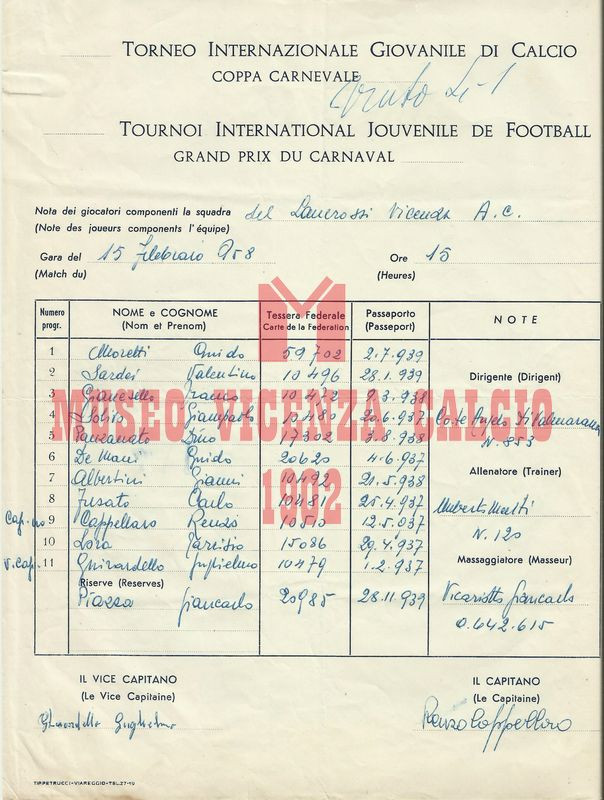 Torneo Internazionale Giovanile di Calcio
COPPA CARNEVALE
Tournoi International Jouvenile de Football
GRAND PRIX DU CARNAVAL
Nota dei giocatori componenti la squadra del Lanerossi Vicenza A.C.
(Note des joueurs components l'équipe)
Gara del 15 Febbraio 958 Ore 15
(Match du) (Heures)
Numero progr. NOME e COGNOME (Nom et Prenom) Tessera Federale Carte de la Federation Passaporto (Passeport) NOTE
1 Moretti Guido 59702 2.7.939
2 Sardei Valentino 10496 28.1.939
Dirigente (Dirigent)
3 Gianesello Franco 10472 9.3.938
4 Giampaolo 10480 20.6.937 Conte Angelo di Valmarana
5 Panzanato Dino 17302 3.8.938 N. 853
6 De Mani Guido 20620 4.6.937
Allenatore (Trainer)
7 Albertini Gianni 10492 21.5.938
8 Fusato Carlo 10481 25.4.937 Umberto Menti
Cap. 9 Cappellaro Renzo 10510 12.5.037
N. 120
10 Lora Tarcisio 15086 29.4.937
Massaggiatore (Masseur)
V. Cap. 11 Ghirardello Guglielmo 10479 1.2.937
Riserve (Reserves)
Piazza Giancarlo 20985 28.11.939 Vicariotto Giancarlo
0.642.615
MUSEO VICENZA CALCIO
1902
IL VICE CAPITANO IL CAPITANO
(Le Vice Capitaine) (Le Capitaine)
Ghirardello Guglielmo Renzo Cappellaro
TIP. PETRUCCI - VIAREGGIO - TEL. 27-19